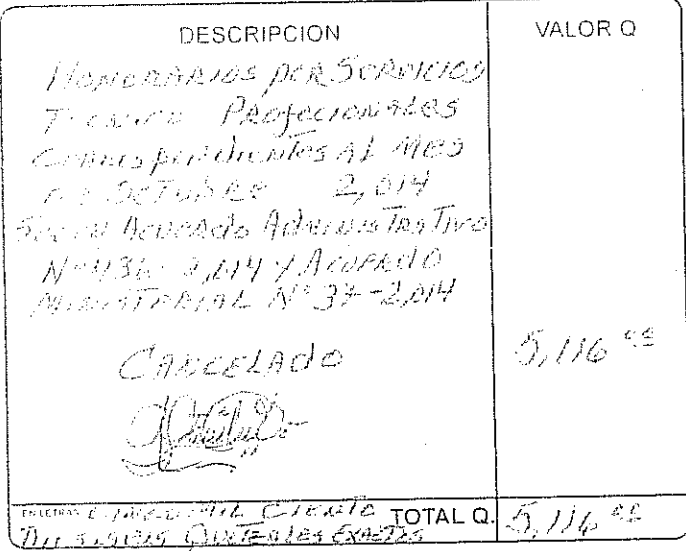 DESCRIPCION
VALOR Q
HONORARIOS POR SERVICIOS
TECNICO PROFECIONALES
CORRESPONDIENTES AL MES
DE OCTUBRE 2,014
SEGUN ACUERDO ADMINISTRATIVO
Nº 436-2,014 Y ACUERDO
MINISTERIAL Nº 37-2,014
CANCELADO
5,116
EN LETRAS CINCO MIL CIENTO
TOTAL Q. 5,116
QUETZALES EXACTOS